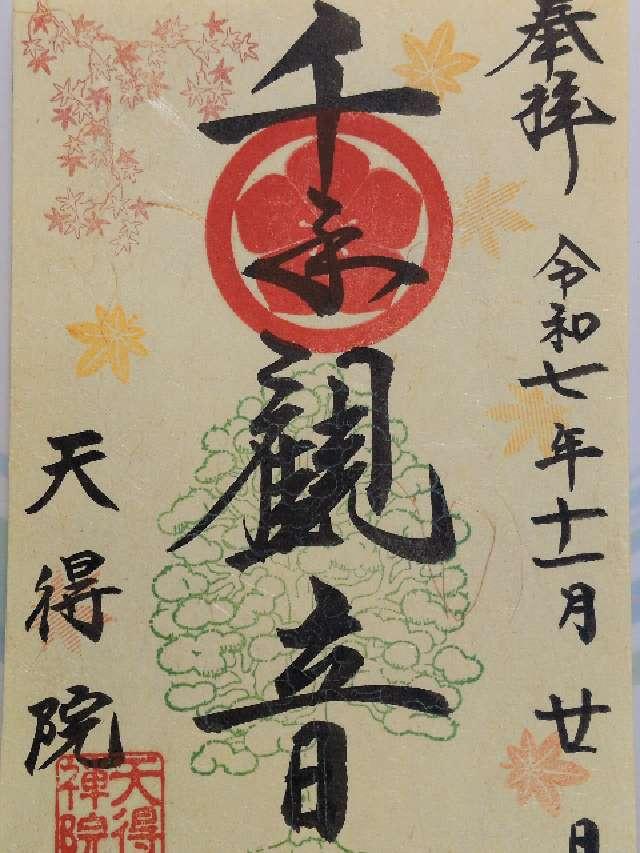 奉拝
令和七年十一月廿日
千手観音
天得院
天得
禅院